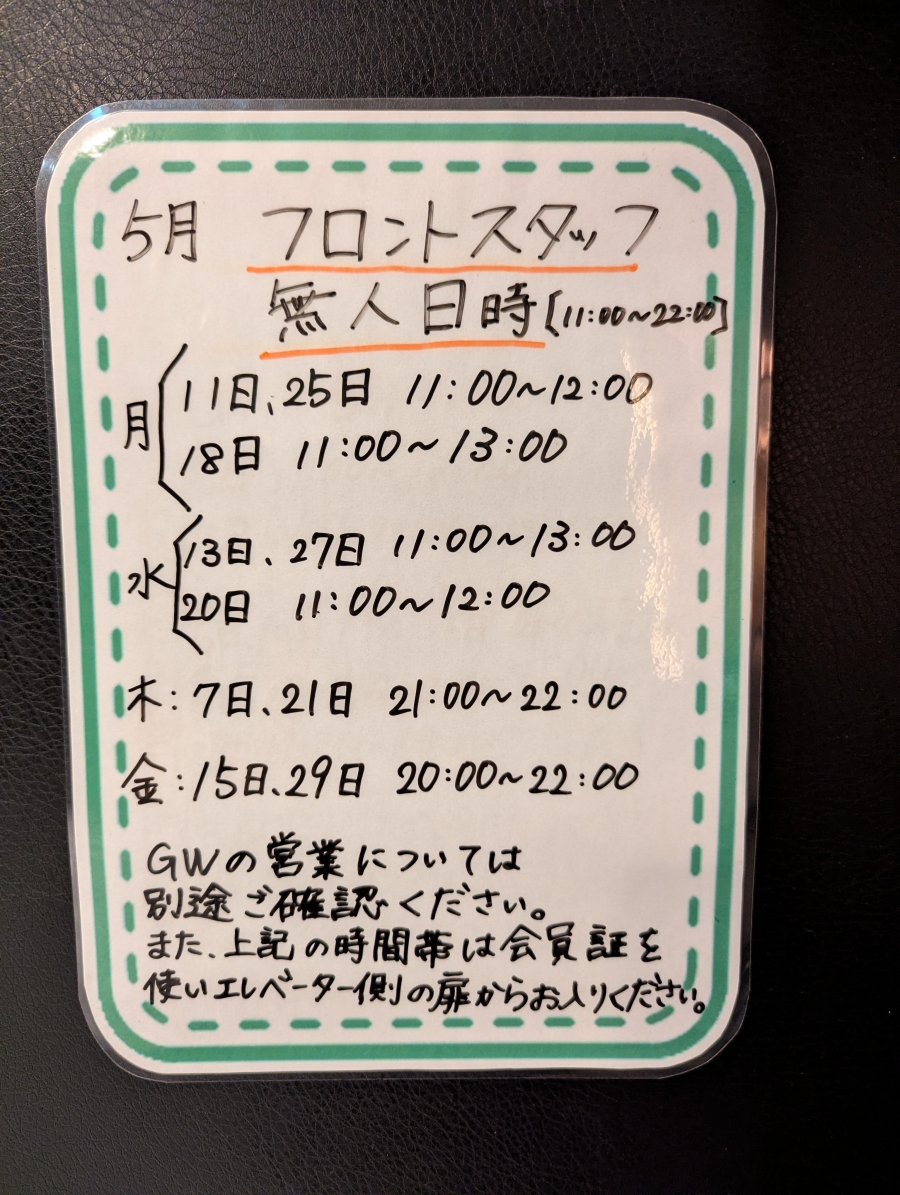 5月 フロントスタッフ
無人日時[11:00～22:00]
月
11日、25日 11:00～12:00
18日 11:00～13:00
水
13日、27日 11:00～13:00
20日 11:00～12:00
木:7日、21日 21:00～22:00
金:15日、29日 20:00～22:00
GWの営業については
別途ご確認ください。
また、上記の時間帯は会員証を
使いエレベーター側の扉からお入りください。